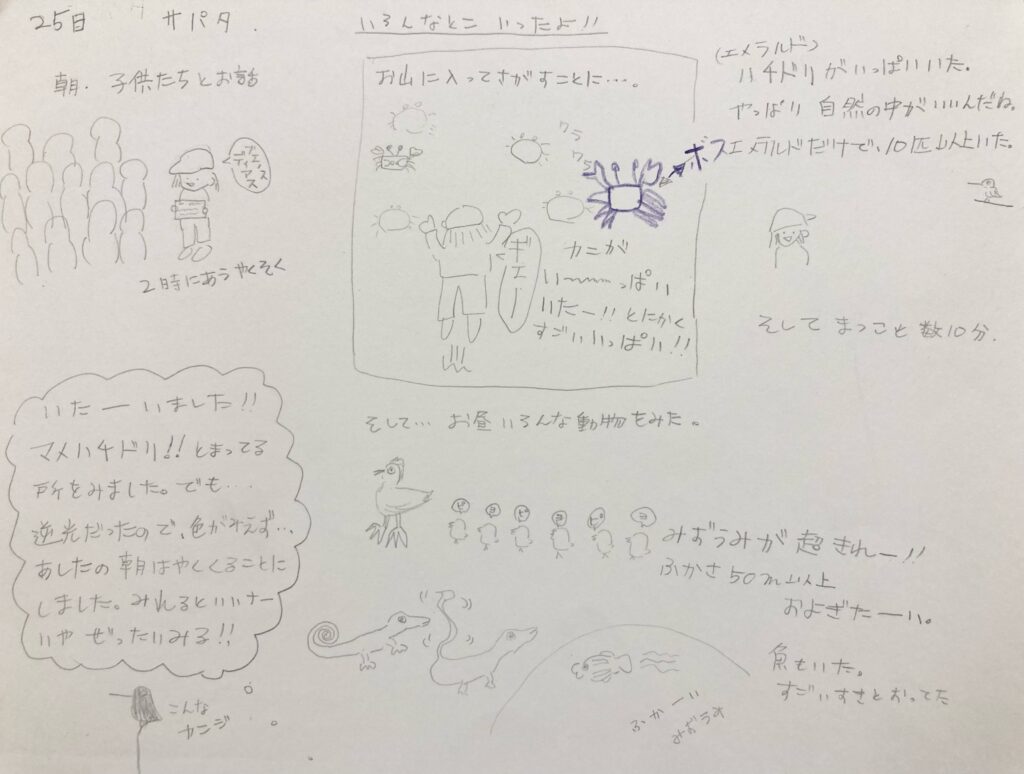 25日 サパタ.
いろんなとこ いったよ!!
朝. 子供たちとお話
ブエノスディアス
2時にあうやくそく
お山に入ってさがすことに…。
ワラ
ワラ
ボス
ギエー
カニが
い〜〜〜っぱい
いたー!! とにかく
すごいいっぱい!!
(エメラルド)
ハチドリがいっぱいいた。
やっぱり 自然の中がいいんだね。
エメラルドだけで、10匹以上いた。
そして まつこと 数10分.
いたーいました!!
マメハチドリ!! とまってる
所をみました。でも…
逆光だったので、色がみえず…
あしたの朝はやくくることに
しました。みれるといいナー
いや ぜったいみる!!
こんな
カンジ
そして… お昼いろんな動物をみた。
ピ ヨ ピ ヨ ピ ヨ
みずうみが 超きれー!!
ふかさ 50m以上
およぎたーい。
魚もいた。
すごいすきとおってた
ふかーい
みずうみ